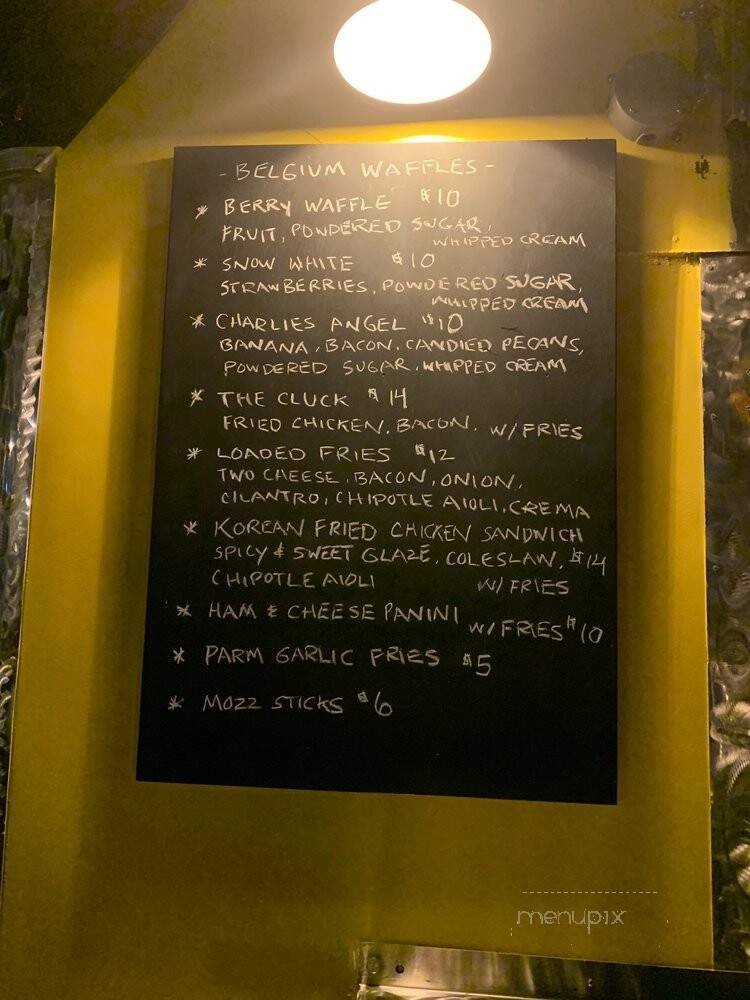 - BELGIUM WAFFLES -
* BERRY WAFFLE $10
FRUIT, POWDERED SUGAR,
WHIPPED CREAM
* SNOW WHITE $10
STRAWBERRIES, POWDERED SUGAR,
WHIPPED CREAM
* CHARLIES ANGEL $10
BANANA, BACON, CANDIED PECANS,
POWDERED SUGAR, WHIPPED CREAM
* THE CLUCK $14
FRIED CHICKEN, BACON, W/ FRIES
* LOADED FRIES $12
TWO CHEESE, BACON, ONION,
CILANTRO, CHIPOTLE AIOLI, CREMA
* KOREAN FRIED CHICKEN SANDWICH
SPICY & SWEET GLAZE, COLESLAW, $14
CHIPOTLE AIOLI W/ FRIES
* HAM & CHEESE PANINI W/ FRIES $10
* PARM GARLIC FRIES $5
* MOZZ STICKS $6
menupix